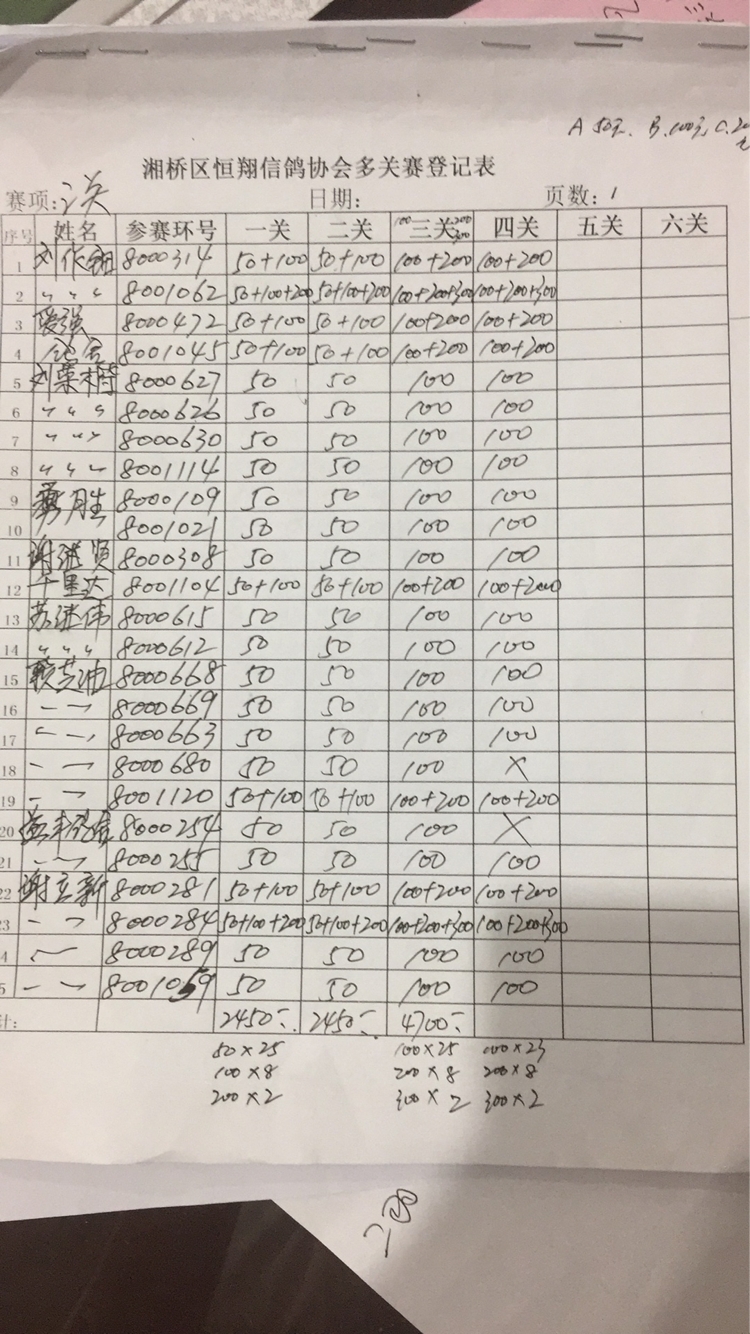 A 50元. B.100元, C.20
元
湘桥区恒翔信鸽协会多关赛登记表
赛项: 关 日期: 页数: 1
序号 姓名 参赛环号 一关 二关 100三关200 300 四关 五关 六关
1 8000314 50+100 50+100 100+200 100+200
2 〃 〃 〃 8001062 50+100+200 50+100+200 100+200+300 100+200+300
3 爱强 8000472 50+100 50+100 100+200 100+200
4 8001045 50+100 50+100 100+200 100+200
5 8000627 50 50 100 100
6 〃 〃 〃 8000626 50 50 100 100
7 〃 〃 〃 8000630 50 50 100 100
8 〃 〃 〃 8001114 50 50 100 100
9 8000109 50 50 100 100
10 8001021 50 50 100 100
11 谢继贤 8000308 50 50 100 100
12 千里达 8001104 50+100 50+100 100+200 100+200
13 苏继伟 8000615 50 50 100 100
14 〃 〃 〃 8000612 50 50 100 100
15 8000668 50 50 100 100
16 8000669 50 50 100 100
17 8000663 50 50 100 100
18 8000680 50 50 100 ×
19 8001120 50+100 50+100 100+200 100+200
20 8000254 50 50 100 ×
21 8000255 50 50 100 100
22 谢立新 8000281 50+100 50+100 100+200 100+200
23 8000284 50+100+200 50+100+200 100+200+300 100+200+300
4 8000289 50 50 100 100
5 8001059 50 50 100 100
计: 2450 2450 4700
50×25 100×25 100×23
100×8 200×8 200×8
200×2 300×2 300×2